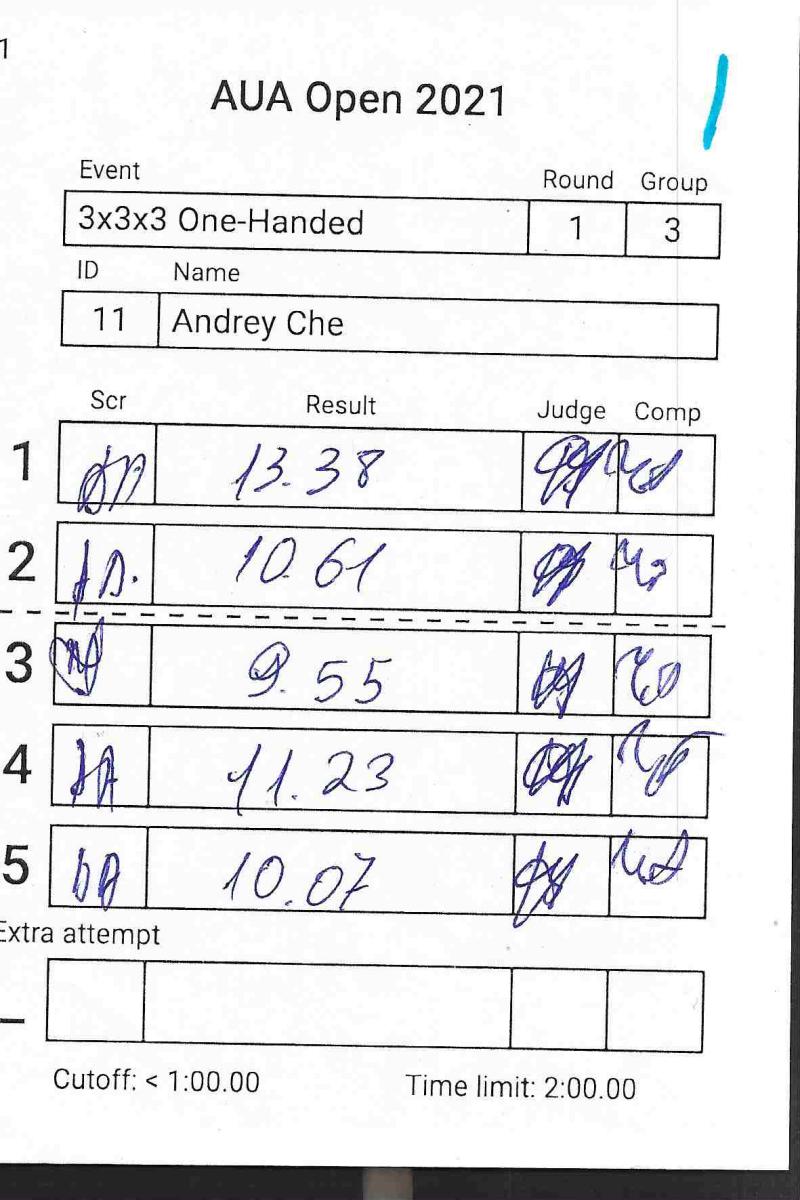 1
AUA Open 2021
Event Round Group
3x3x3 One-Handed 1 3
ID Name
11 Andrey Che
Scr Result Judge Comp
1 13.38
2 10.61
3 9.55
4 11.23
5 10.07
Extra attempt
_
Cutoff: < 1:00.00 Time limit: 2:00.00